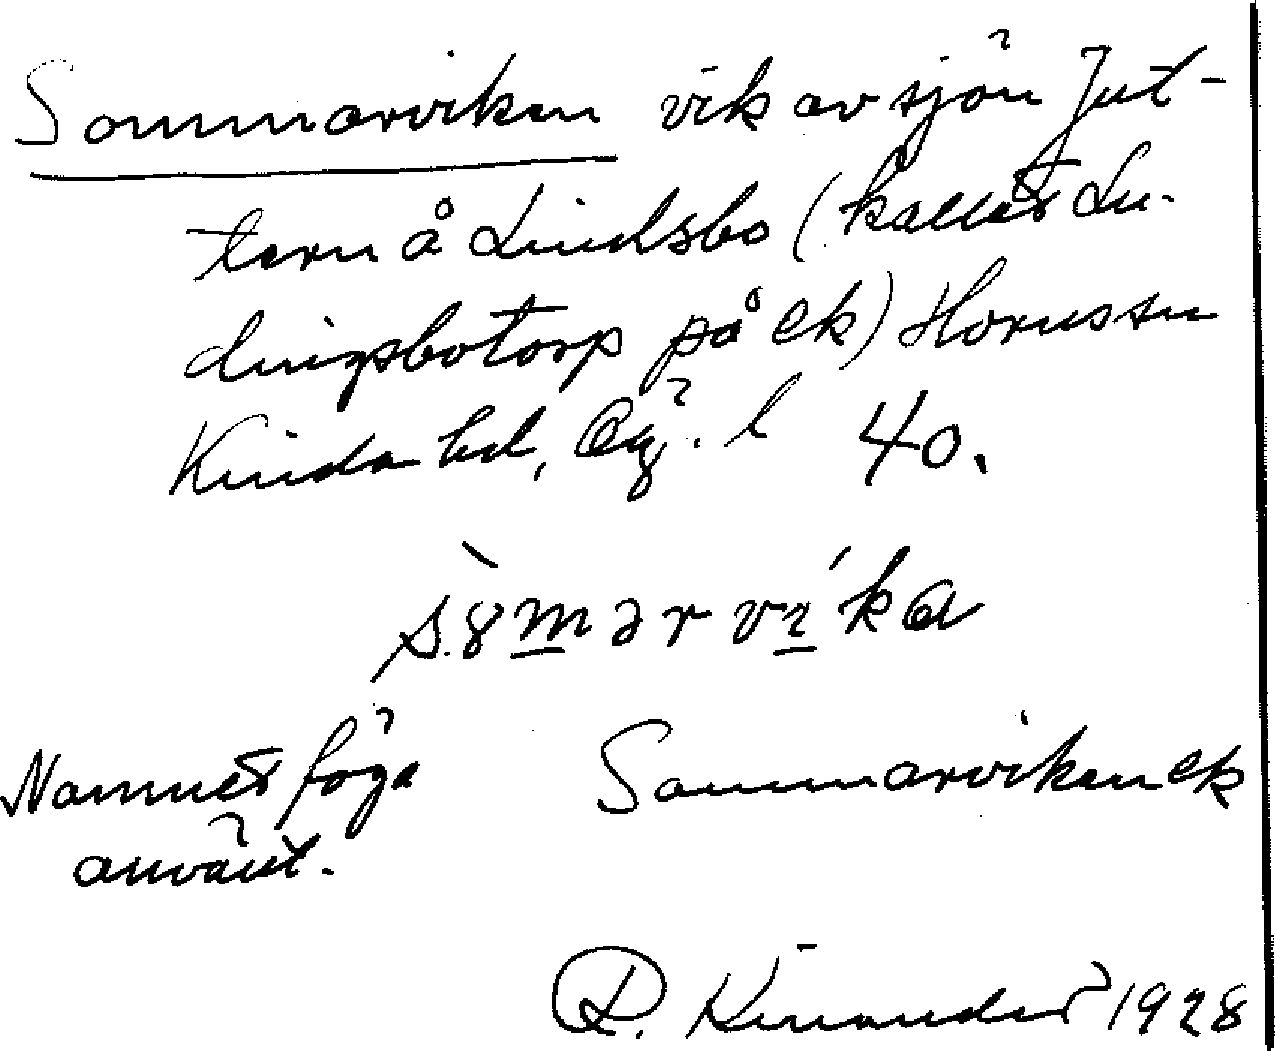 Sommarviken vik av sjön Jut-
tern å Lindsbo (kallat Lu-
dingsbotorp på ek) Hornssn
Kinda hd, Ög. l 40.
s.8mərvi̱ka
Namnet föga Sommarviken ek
använt.
R. Kinander 1928